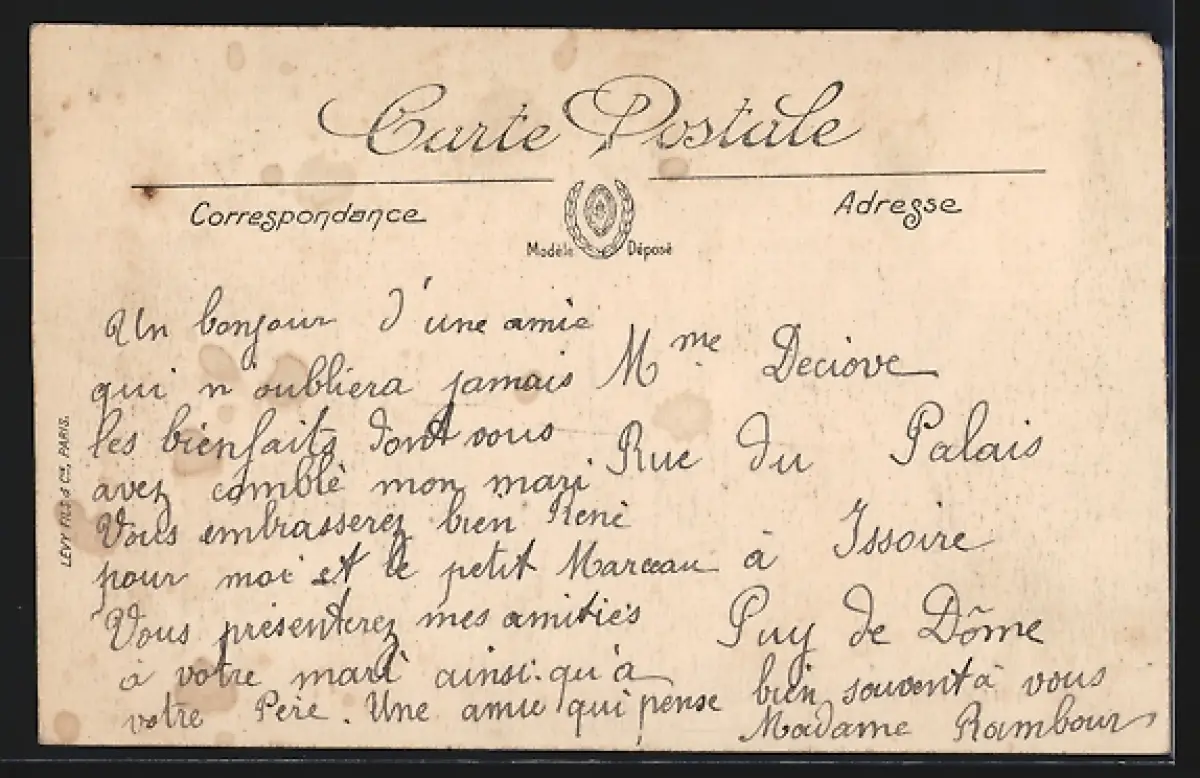 Carte Postale
Correspondance
Adresse
Modèle Déposé
LÉVY FILS & Cie, PARIS.
Un bonjour d'une amie
qui n'oubliera jamais
les bienfaits dont vous
avez comblé mon mari
Vous embrasserez bien René
pour moi et le petit Marceau
Vous présenterez mes amitiés
à votre mari ainsi qu'à
votre Père. Une amie qui pense bien souvent à vous
Madame Rambour
Mme Deciove
Rue du Palais
à Issoire
Puy de Dôme